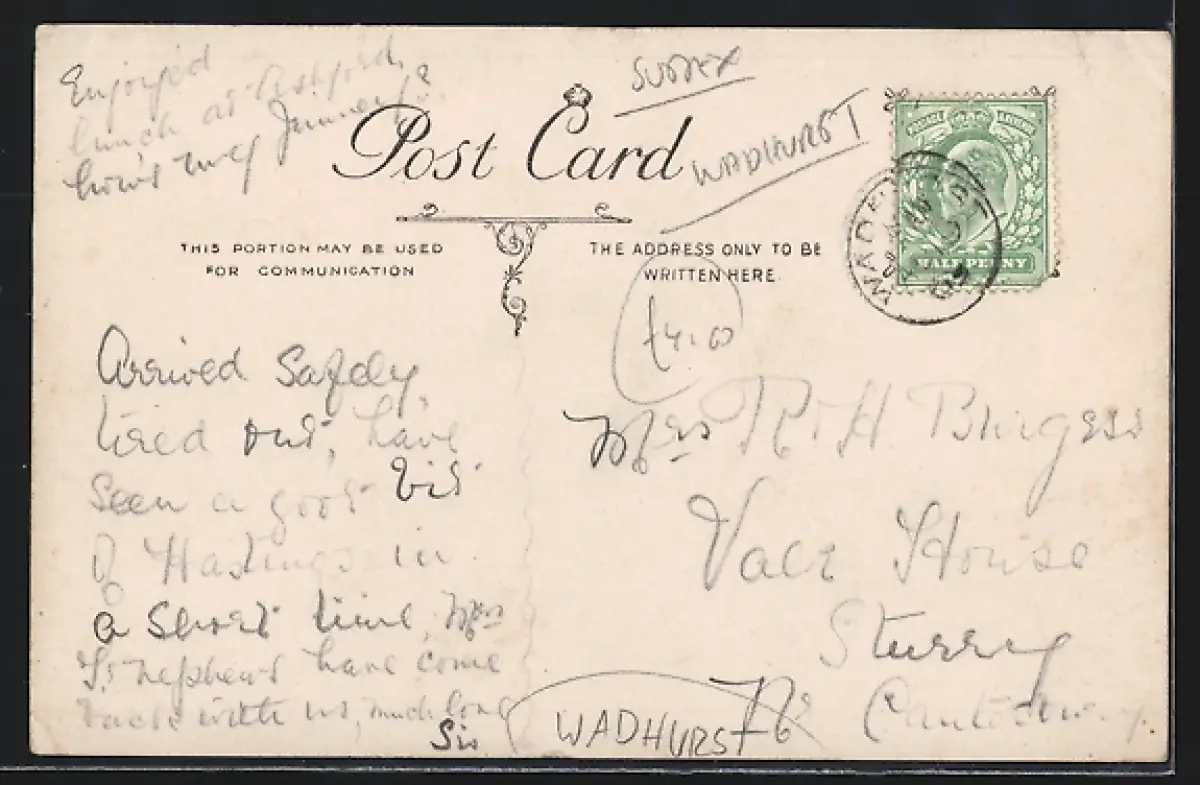 Enjoyed
lunch at Ashford,
how's my
Post Card
SUSSEX
WADHURST
THIS PORTION MAY BE USED
FOR COMMUNICATION
THE ADDRESS ONLY TO BE
WRITTEN HERE.
POSTAGE REVENUE
HALFPENNY
WADHURST
£4.00
Arrived Safely,
tired out, have
seen a good bit
of Hastings in
a short time, Mrs
nephews have come
back with us, much love
Sis
Mrs R H Burgess
Vale House
Sturry
Canterbury
WADHURST